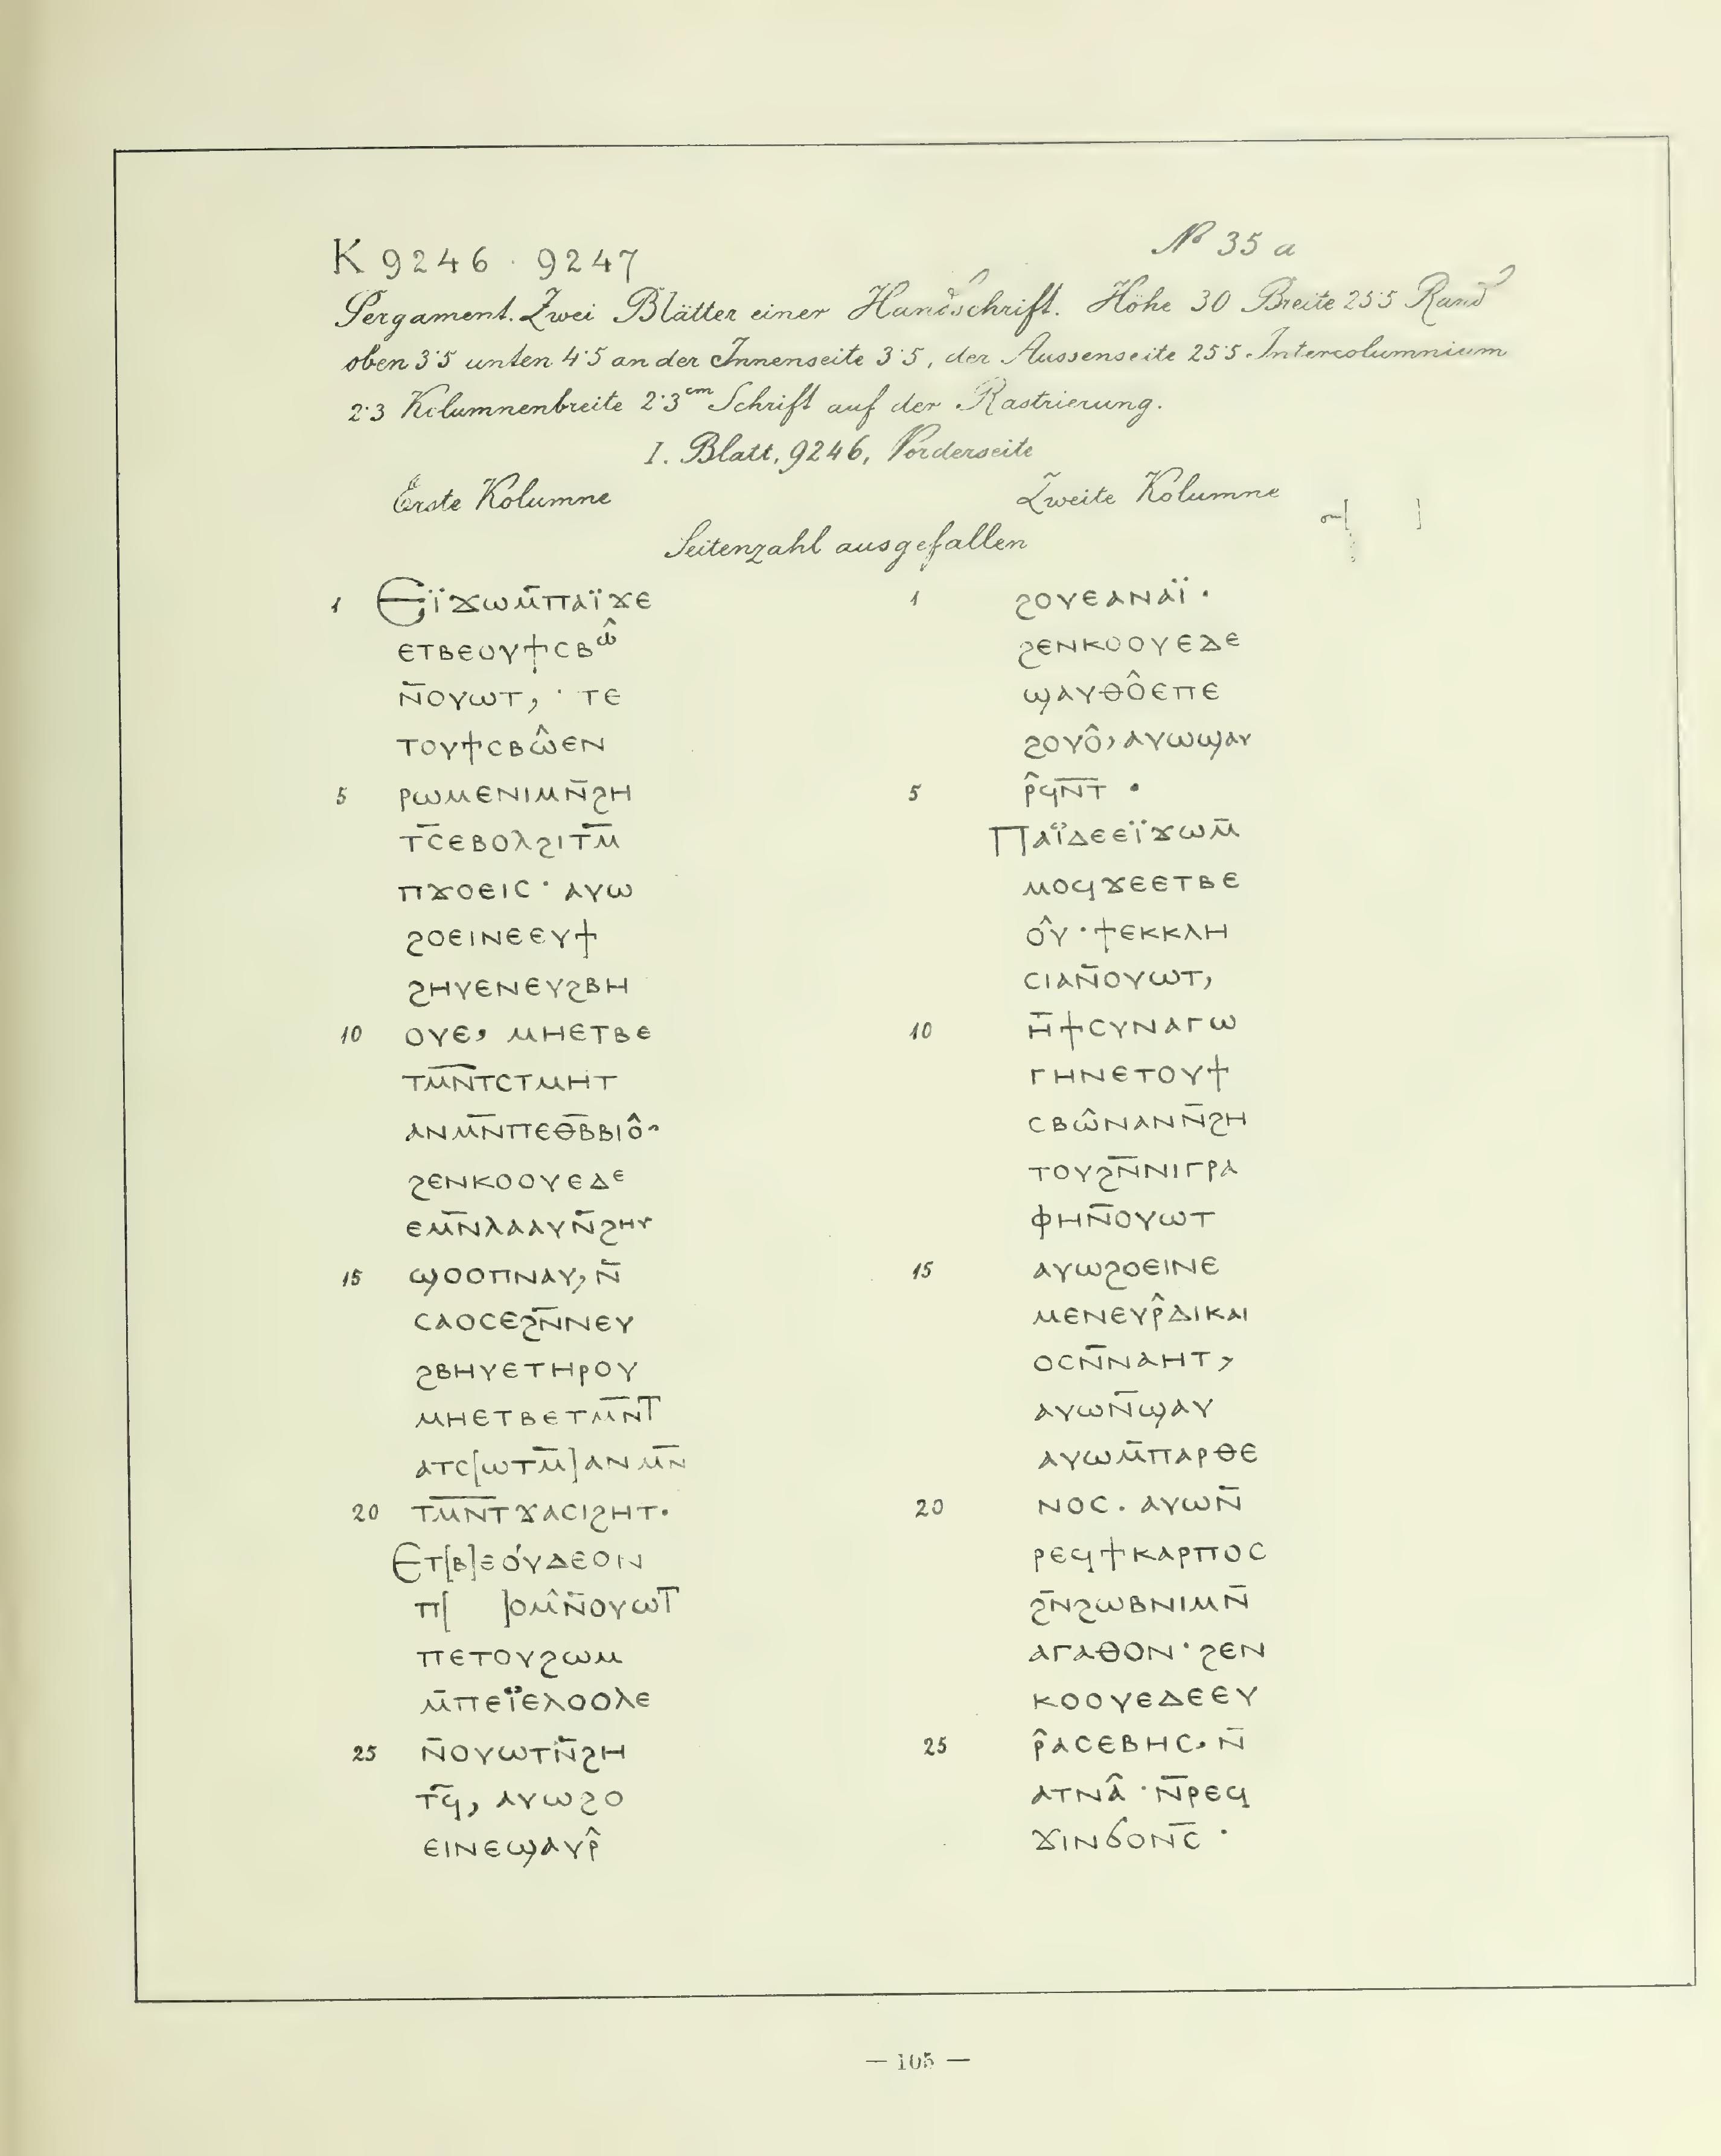 K 9246 · 9247
№ 35 a
Pergament. Zwei Blätter einer Handschrift. Höhe 30 Breite 25·5 Rand
oben 3·5 unten 4·5 an der Innenseite 3·5, der Aussenseite 25·5. Intercolumnium
2·3 Kolumnenbreite 2·3 cm Schrift auf der Rastrierung.
I. Blatt, 9246, Vorderseite
Erste Kolumne
Zweite Kolumne
Seitenzahl ausgefallen
1 Ⲉⲓ̈ϫⲱⲙ̄ⲡⲁⲓ̈ϫⲉ
ⲉⲧⲃⲉⲟⲩϯⲥⲃⲱ̂
ⲛ̄ⲟⲩⲱⲧ, · ⲧⲉ
ⲧⲟⲩϯⲥⲃⲱ̂ⲉⲛ
5 ⲣⲱⲙⲉⲛⲓⲙⲛ̄ϩⲏ
ⲧⲥ̄ⲉⲃⲟⲗϩⲓⲧⲙ̄
ⲡϫⲟⲉⲓⲥ· ⲁⲩⲱ
ϩⲟⲉⲓⲛⲉⲉⲩϯ
ϩⲏⲩⲉⲛⲉⲩϩⲃⲏ
10 ⲟⲩⲉ, ⲙⲏⲉⲧⲃⲉ
ⲧⲙ̄ⲛ̄ⲧⲥⲧⲙⲏⲧ
ⲁⲛⲙ̄ⲛ̄ⲡⲉⲑ̄ⲃ̄ⲃⲓⲟ̂·
ϩⲉⲛⲕⲟⲟⲩⲉⲇⲉ
ⲉⲙ̄ⲛ̄ⲗⲁⲁⲩⲛ̄ϩⲏⲩ
15 ϣⲟⲟⲡⲛⲁⲩ, ⲛ̄
ⲥⲁⲟⲥⲉϩ̄ⲛ̄ⲛⲉⲩ
ϩⲃⲏⲩⲉⲧⲏⲣⲟⲩ
ⲙⲏⲉⲧⲃⲉⲧⲙ̄ⲛ̄ⲧ
ⲁⲧⲥ[ⲱⲧⲙ̄]ⲁⲛⲙ̄ⲛ̄
20 ⲧⲙ̄ⲛ̄ⲧϫⲁⲥⲓϩⲏⲧ·
Ⲉⲧ[ⲃ]ⲉⲟ́ⲩⲇⲉⲟⲛ
ⲡ[ ]ⲟⲙ̂ⲛ̄ⲟⲩⲱⲧ
ⲡⲉⲧⲟⲩϩⲱⲙ
ⲙ̄ⲡⲉⲓ̈ⲉⲗⲟⲟⲗⲉ
25 ⲛ̄ⲟⲩⲱⲧⲛ̄ϩⲏ
ⲧϥ̄, ⲁⲩⲱϩⲟ
ⲉⲓⲛⲉϣⲁⲩⲣ̂
1 ϩⲟⲩⲉⲁⲛⲁⲓ̈·
ϩⲉⲛⲕⲟⲟⲩⲉⲇⲉ
ϣⲁⲩⲑⲟ̂ⲉⲡⲉ
ϩⲟⲩⲟ̂, ⲁⲩⲱϣⲁⲩ
5 ⲣ̂ϥⲛ̄ⲧ̄ ·
Ⲡⲁⲓ̈ⲇⲉⲉⲓ̈ϫⲱⲙ̄
ⲙⲟϥϫⲉⲉⲧⲃⲉ
ⲟ̂ⲩ·ϯⲉⲕⲕⲗⲏ
ⲥⲓⲁⲛ̄ⲟⲩⲱⲧ,
10 ⲏ̄ϯⲥⲩⲛⲁⲅⲱ
ⲅⲏⲛⲉⲧⲟⲩϯ
ⲥⲃⲱ̂ⲛⲁⲛⲛ̄ϩⲏ
ⲧⲟⲩϩ̄ⲛ̄ⲛⲓⲅⲣⲁ
ⲫⲏⲛ̄ⲟⲩⲱⲧ
15 ⲁⲩⲱϩⲟⲉⲓⲛⲉ
ⲙⲉⲛⲉⲩⲣ̂ⲇⲓⲕⲁⲓ
ⲟⲥⲛ̄ⲛⲁⲏⲧ,
ⲁⲩⲱⲛ̄ϣⲁⲩ
ⲁⲩⲱⲙ̄ⲡⲁⲣⲑⲉ
20 ⲛⲟⲥ. ⲁⲩⲱⲛ̄
ⲣⲉϥϯⲕⲁⲣⲡⲟⲥ
ϩ̄ⲛ̄ϩⲱⲃⲛⲓⲙⲛ̄
ⲁⲅⲁⲑⲟⲛ·ϩⲉⲛ
ⲕⲟⲟⲩⲉⲇⲉⲉⲩ
25 ⲣ̂ⲁⲥⲉⲃⲏⲥ, ⲛ̄
ⲁⲧⲛⲁ̂·ⲛ̄ⲣⲉϥ
ϫⲓⲛϭⲟⲛ̄ⲥ̄·
— 105 —